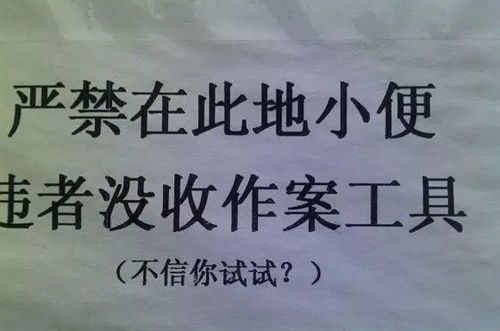 严禁在此地小便
违者没收作案工具
（不信你试试？）